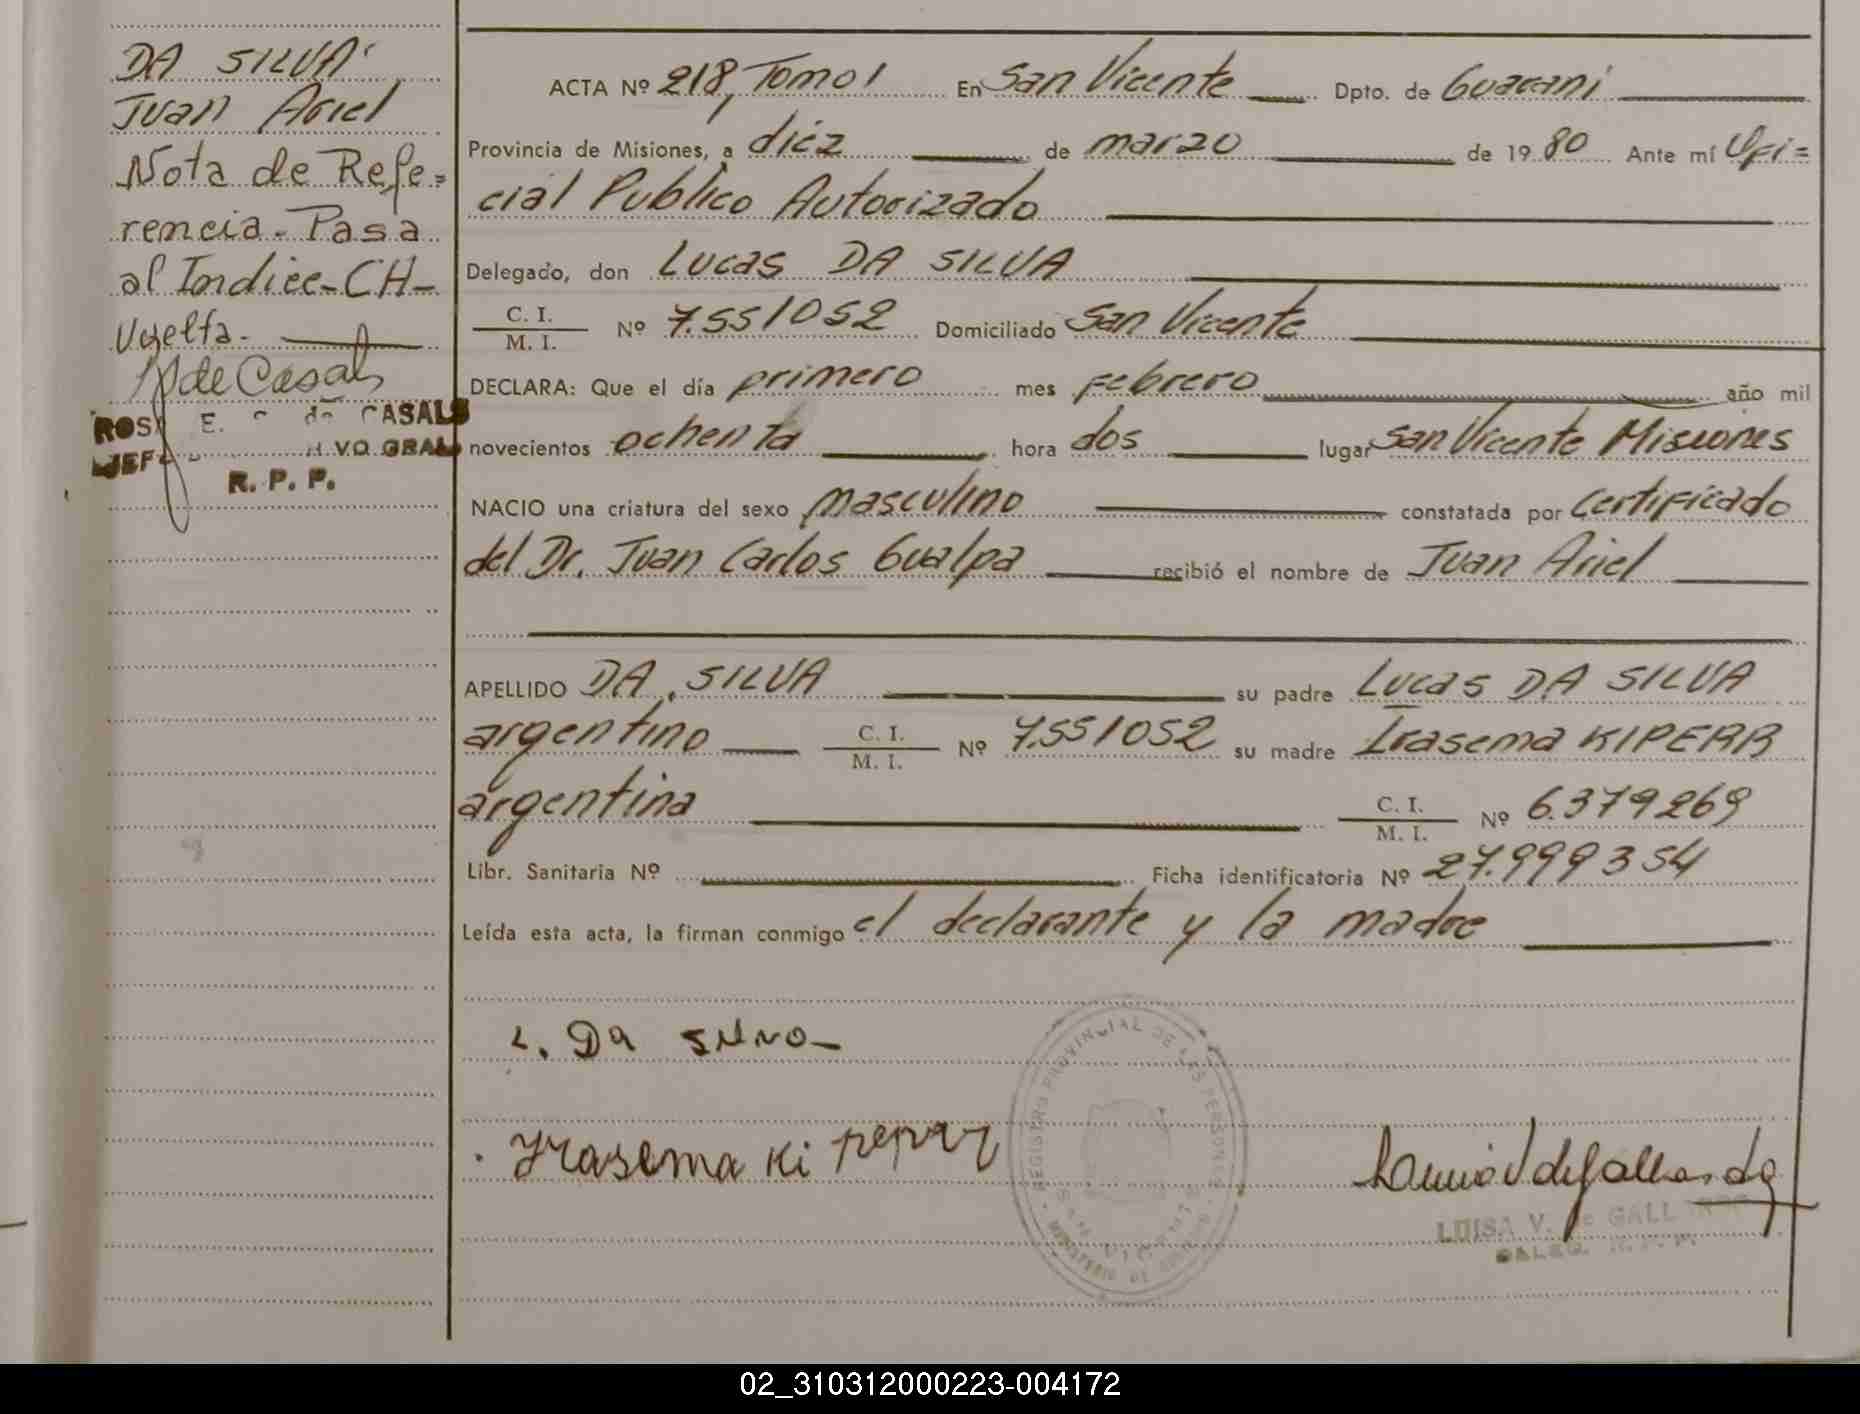 DA SILVA
Juan Ariel
Nota de Refe=
rencia - Pasa
al Indice - CH -
Vuelta -
de Casals
E. CASALS
R. P. P.
ACTA Nº 218, Tomo I En San Vicente Dpto. de Guarani
Provincia de Misiones, a diez de marzo de 1980 Ante mí Ofi=
cial Publico Autorizado
Delegado, don Lucas DA SILVA
C. I.
M. I. Nº 7.551052 Domiciliado San Vicente
DECLARA: Que el día primero mes febrero año mil
novecientos ochenta hora dos lugar San Vicente Misiones
NACIO una criatura del sexo masculino constatada por certificado
del Dr. Juan Carlos Gualpa recibió el nombre de Juan Ariel
APELLIDO DA SILVA su padre Lucas DA SILVA
argentino C. I. M. I. Nº 7.551052 su madre Irasema KIPERR
argentina C. I. M. I. Nº 6.379269
Libr. Sanitaria Nº Ficha identificatoria Nº 27.999354
Leída esta acta, la firman conmigo el declarante y la madre
L. Da Silva
Irasema Ki
REGISTRO PROVINCIAL DE LAS PERSONAS
LUISA V. de GALLARDO
DELEG. R. P. P.
02_310312000223-004172